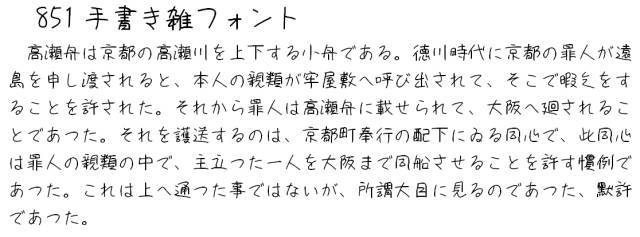 851手書き雑フォント
高瀬舟は京都の高瀬川を上下する小舟である。徳川時代に京都の罪人が遠
島を申し渡されると、本人の親類が牢屋敷へ呼び出されて、そこで暇乞をす
ることを許された。それから罪人は高瀬舟に載せられて、大阪へ廻されるこ
とであつた。それを護送するのは、京都町奉行の配下にゐる同心で、此同心
は罪人の親類の中で、主立つた一人を大阪まで同船させることを許す慣例で
あつた。これは上へ通つた事ではないが、所謂大目に見るのであつた、默許
であつた。